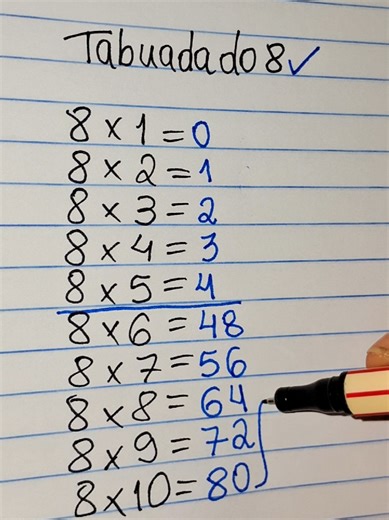 Tabuada do 8 ✓
8 x 1 = 0
8 x 2 = 1
8 x 3 = 2
8 x 4 = 3
8 x 5 = 4
8 x 6 = 48
8 x 7 = 56
8 x 8 = 64
8 x 9 = 72
8 x 10 = 80